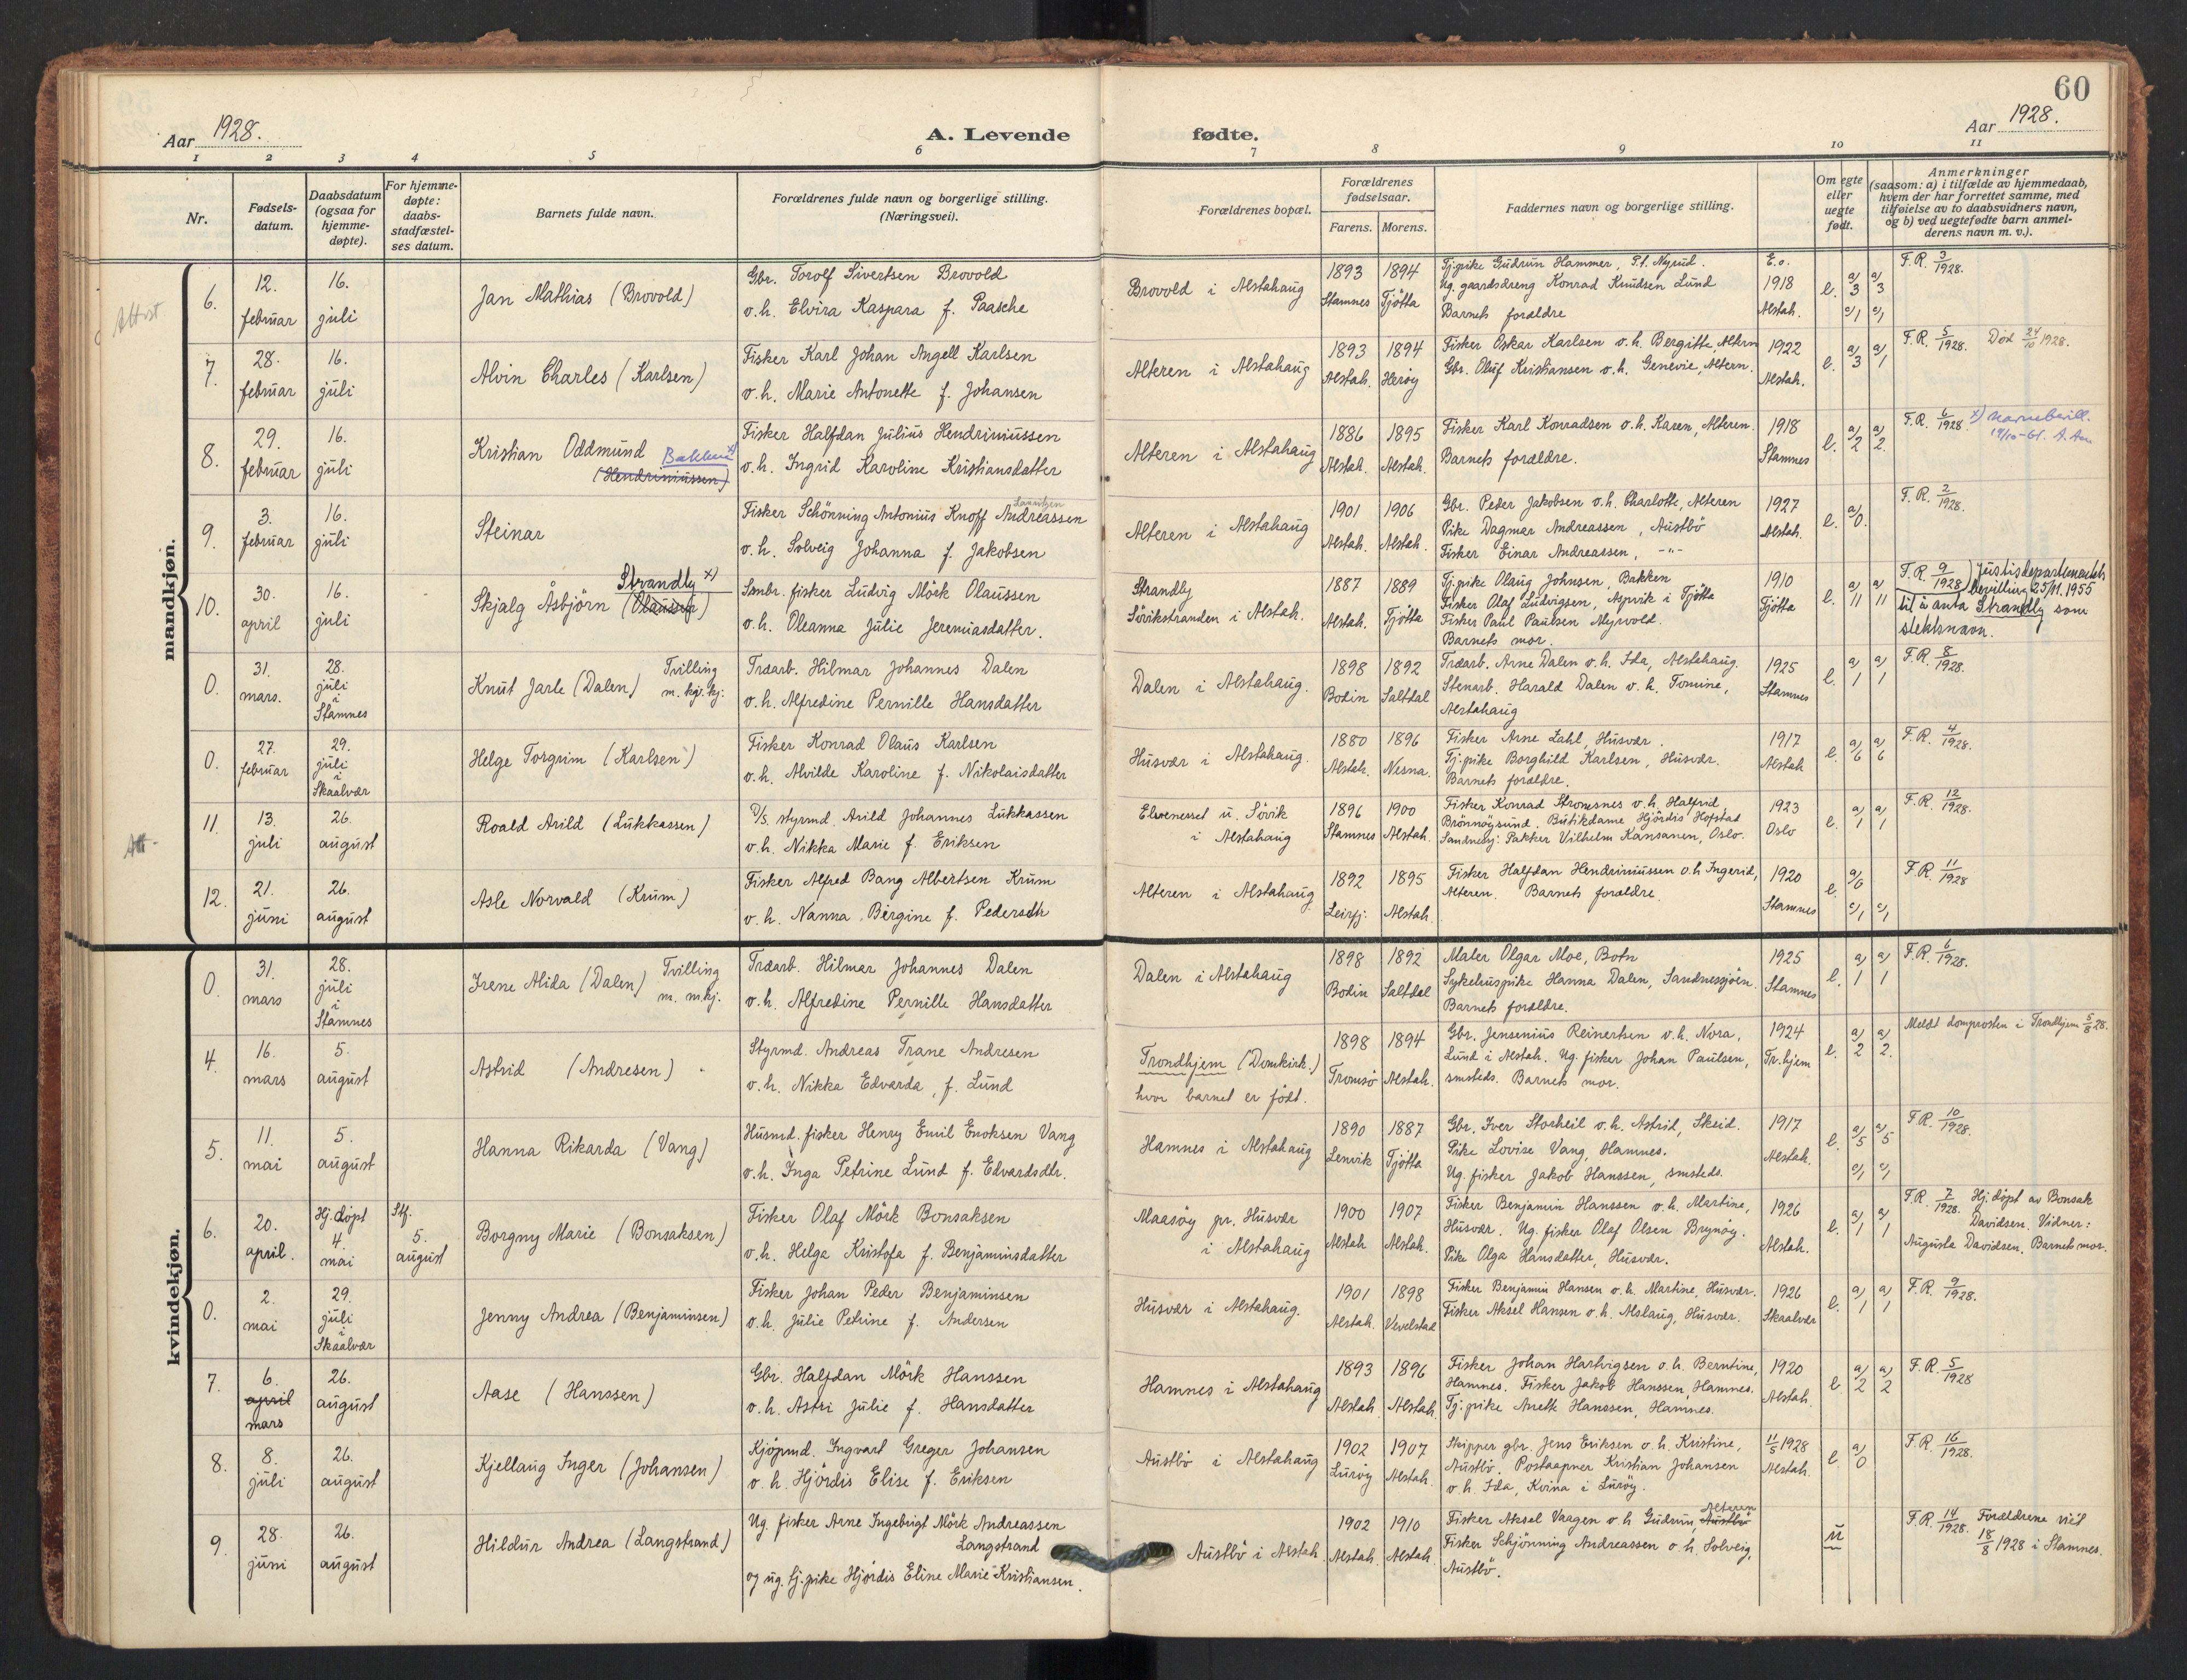 60
Aar 1928.
A. Levende fødte.
Aar 1928.
1 2 3 4 5 6 7 8 9 10 11
Nr.
Fødsels-
datum.
Daabsdatum
(ogsaa for
hjemme-
døpte).
For hjemme-
døpte:
daabs-
stadfæstel-
ses datum.
Barnets fulde navn.
Forældrenes fulde navn og borgerlige stilling.
(Næringsvei).
Forældrenes bopæl.
Forældrenes
fødselsaar.
Farens. Morens.
Faddernes navn og borgerlige stilling.
Om egte
eller
uegte
født.
Anmerkninger
(saasom: a) i tilfælde av hjemmedaab,
hvem der har forrettet samme, med
tilføielse av to daabsvidners navn,
og b) ved uegtefødte barn anmel-
derens navn m. v.).
mandkjøn.
Attest
6.
12.
februar
16.
juli
Jan Mathias (Brovold)
Gbr. Torolf Sivertsen Brovold
o.h. Elvira Kaspara f. Paasche
Brovold i Alstahaug
1893
Stamnes
1894
Tjötta
Tj.pike Gudrun Hammer, P.t. Myrud.
Ug. gaardsdreng Konrad Knudsen Lund
Barnets forældre
E.o.
1918
Alstah.
e.
a/3 a/3
c/1 c/1
F.R. 3/1928.
7.
28.
februar
16.
juli
Alvin Charles (Karlsen)
Fisker Karl Johan Angell Karlsen
o.h. Marie Antonette f. Johansen
Alteren i Alstahaug
1893
Alstah.
1894
Herøy
Fisker Oskar Karlsen o.h. Bergitte, Altern
Gbr. Oluf Kristiansen o.h. Genevie, Altern.
1922
Alstah.
e.
a/3 a/1
F.R. 5/1928. Död 24/10 1928.
8.
29.
februar
16.
juli
Kristian Oddmund Bakken x)
(Hendriniussen)
Fisker Halfdan Julius Hendriniussen
o.h. Ingrid Karoline Kristiansdatter
Alteren i Alstahaug
1886
Alstah.
1895
Alstah.
Fisker Karl Konradsen o.h. Karen, Alteren.
Barnets forældre.
1918
Stamnes
e.
a/2 a/2.
F.R. 6/1928 x) Navnebevill.
9.
3.
februar
16.
juli
Steinar
Fisker Schönning Antonius Knoff Andreassen
o.h. Solveig Johanna f. Jakobsen
Alteren i Alstahaug
1901
Alstah.
1906
Alstah.
Gbr. Peder Jakobsen o.h. Charlotte, Alteren
Pike Dagmar Andreassen, Austbö
Fisker Einar Andreassen, -"-
1927
Alstah.
e.
a/0.
F.R. 2/1928.
10.
30.
april
16.
juli
Strandly x)
Skjalg Åsbjörn (Olaussen)
Smbr. fisker Ludvig Mörk Olaussen
o.h. Oleanna Julie Jeremiasdatter.
Strandly
Sörvikstranden i Alstah.
1887
Alstah.
1889
Tjötta
Tj.pike Olaug Johnsen, Bakken
Fisker Olaf Ludvigsen, Aspvik i Tjötta
Fisker Paul Paulsen Myrvold.
Barnets mor.
1910
Tjötta
e.
a/11 a/11
F.R. 9/1928) Justisdepartementets
bevilling 25/11.1955
til å anta Strandly som
slektsnavn.
0.
31.
mars.
28.
juli
i
Stamnes
Knut Jarle (Dalen) Tvilling
m. kv.kj.
Trdarb. Hilmar Johannes Dalen
o.h. Alfredine Pernille Hansdatter
Dalen i Alstahaug.
1898
Bodin
1892
Saltdal
Trdarb. Arne Dalen o.h. Ida, Alstahaug.
Stenarb. Harald Dalen o.h. Tomine,
Alstahaug
1925
Stamnes
e.
a/1 a/1
F.R. 8/1928.
0.
27.
februar
29.
juli
i
Skaalvær
Helge Torgrim (Karlsen)
Fisker Konrad Olaus Karlsen
o.h. Alvilde Karoline f. Nikolaisdatter
Husvær i Alstahaug.
1880
Alstah.
1896
Nesna.
Fisker Arne Zahl, Husvær.
Tj.pike Borghild Karlsen, Husvær.
Barnets forældre.
1917
Alstah
e.
a/6 a/6
F.R. 4/1928.
Att-
11.
13.
juli
26.
august
Roald Arild (Lukkassen)
D/S. styrmd. Arild Johannes Lukkassen
o.h. Nikka Marie f. Eriksen
Elveneset u. Sövik
i Alstahaug
1896
Stamnes
1900
Alstah.
Fisker Konrad Stromsnes o.h. Halfrid,
Brönnöysund. Butikdame Hjördis Hofstad
Sandnessj. Pakker Vilhelm Kansanen, Oslo.
1923
Oslo
e.
a/1 a/1
F.R. 12/1928.
12.
21.
juni
26.
august
Asle Norvald (Krum)
Fisker Alfred Bang Albertsen Krum
o.h. Nanna Bergine f. Pedersdtr
Alteren i Alstahaug
1892
Leirfj.
1895
Alstah.
Fisker Halfdan Hendriniussen o.h Ingerid,
Alteren. Barnets forældre.
1920
Stamnes
e.
a/6
c/1 c/1
F.R. 11/1928
kvindekjøn.
0.
31.
mars
28.
juli
i
Stamnes
Irene Alida (Dalen) Tvilling
m. m.kj.
Trdarb. Hilmar Johannes Dalen
o.h. Alfredine Pernille Hansdatter
Dalen i Alstahaug
1898
Bodin
1892
Saltdal
Maler Olgar Moe, Botn
Sykehuspike Hanna Dalen, Sandnessjöen.
Barnets forældre.
1925
Stamnes
e.
a/1 a/1
F.R. 6/1928.
4.
16.
mars
5.
august
Astrid (Andresen)
Styrmd. Andreas Trane Andresen
o.h. Nikka Edvarda, f. Lund
Trondhjem (Domkirk.)
hvor barnet er født.
1898
Tromsö
1894
Alstah.
Gbr. Jensenius Reinertsen o.h. Nora,
Lund i Alstah. Ug. fisker Johan Paulsen,
smsteds. Barnets mor.
1924
Tr.hjem
e.
a/2 a/2.
Meldt domprosten i Trondhjem 5/8 28.
5.
11.
mai
5.
august
Hanna Rikarda (Vang)
Husmd. fisker Henry Emil Enoksen Vang
o.h. Inga Petrine Lund f. Edvardsdtr.
Hamnes i Alstahaug
1890
Lenvik
1887
Tjötta
Gbr. Iver Storheil o.h. Astrid, Skeid.
Pike Lovise Vang, Hamnes.
Ug. fisker Jakob Hanssen, smsteds.
1917
Alstah.
e.
a/5 a/5
c/1 c/1
F.R. 10/1928.
6.
20.
april.
Hj.døpt
4.
mai
Stf.
5.
august
Borgny Marie (Bonsaksen)
Fisker Olaf Mörk Bonsaksen
o.h. Helga Kristofa f. Benjaminsdatter
Maasöy pr. Husvær
i Alstahaug
1900
Alstah
1907
Alstah.
Fisker Benjamin Hanssen o.h. Martine,
Husvær. Ug. fisker Olaf Olsen Brynöy.
Pike Olga Hansdatter, Husvær.
1926
Alstah.
e.
a/1 a/1
F.R. 7/1928. Hj.døpt av Bonsak
Davidsen. Vidner:
Augusta Davidsen. Barnets mor.
0.
2.
mai
29.
juli
i
Skaalvær
Jenny Andrea (Benjaminsen)
Fisker Johan Peder Benjaminsen
o.h. Julie Petrine f. Andersen
Husvær i Alstahaug.
1901
Alstah.
1898
Vevelstad
Fisker Benjamin Hansen o.h. Martine, Husvær.
Fisker Aksel Hansen o.h. Aslaug, Husvær.
1926
Skaalvær
e.
a/1 a/1
F.R. 9/1928.
7.
6.
april
mars
26.
august
Aase (Hanssen)
Gbr. Halfdan Mörk Hanssen
o.h. Astri Julie f. Hansdatter
Hamnes i Alstahaug
1893
Alstah.
1896
Alstah.
Fisker Johan Hartvigsen o.h. Berntine,
Hamnes. Fisker Jakob Hanssen, Hamnes.
Tj.pike Anette Hanssen, Hamnes.
1920
Alstah.
e.
a/2 a/2
F.R. 5/1928
8.
8.
juli
26.
august
Kjellaug Inger (Johansen)
Kjöpmd. Ingvart Greger Johansen
o.h. Hjördis Elise f. Eriksen
Austbö i Alstahaug
1902
Luröy
1907
Alstah.
Skipper gbr. Jens Eriksen o.h. Kristine,
Austbö. Postaapner Kristian Johansen
o.h. Ida, Kvina i Luröy.
11/5 1928
Alstah.
e
a/0
F.R. 16/1928.
9.
28.
juni
26.
august
Hildur Andrea (Langstrand)
Ug. fisker Arne Ingebrigt Mörk Andreassen
Langstrand
og ug. tj.pike Hjördis Eline Marie Kristiansen.
Austbö i Alstah.
1902
Alstah.
1910
Alstah.
Alteren
Fisker Aksel Vaagen o.h Gudrun, Austbö
Fisker Schjönning Andreassen o.h. Solveig,
Austbö.
u
F.R. 14/1928. Forældrene viet
18/8 1928 i Stamnes.